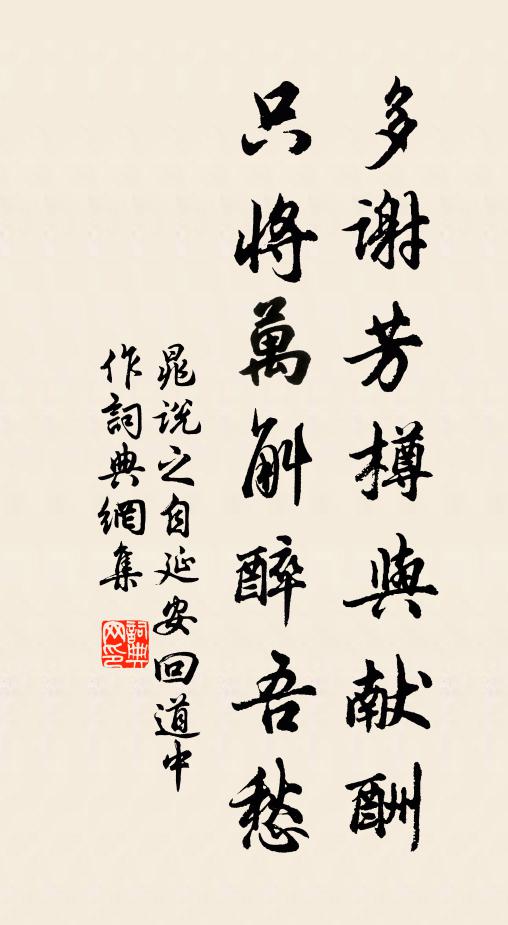 多谢芳樽與献酬
只將萬斛醉吾愁
晁说之自延安回道中
作詞典網集
詞典网印